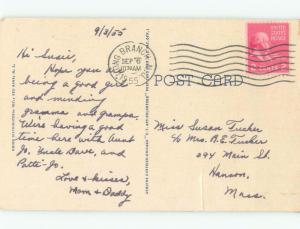 9/3/55
Hi Susie,
Hope you are
being a good girl
and minding
gramma and grampa.
We're having a good
time here with Aunt
Jo, Uncle Dave, and
Patti-Jo.
Love & kisses,
Mom & Daddy
LONG BRANCH
SEP 6
AM
1955
UNITED STATES
POSTAGE
POST CARD
Miss Susan Tucker
c/o Mrs. A.E. Tucker
294 Main St.
Hanson,
Mass.